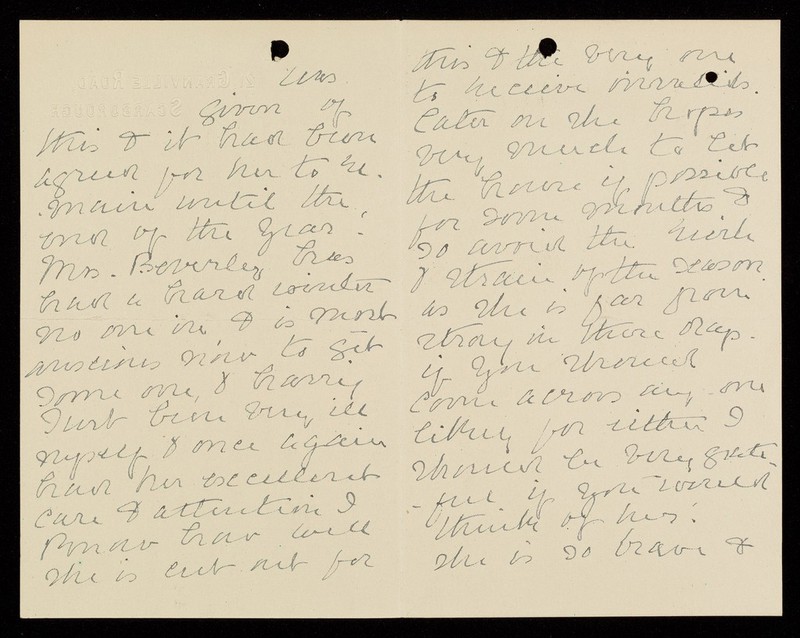 was
given up
this & it had been
agreed for her to re-
-main until the
end of the year.
Mrs. Beverley has
had a hard winter
no one in & is most
anxious now to get
some one, & having
just been very ill
myself & once again
had her excellent
care & attention I
know how well
she is cut out for
this & the very one
to receive invalids.
Later on she hopes
very much to let
the house if possible
for some months &
so avoid the work
& strain of the season
as she is far from
strong in these days.
if you should
come across any one
likely for either I
should be very grate
-ful if you would
think of her.
she is so brave &